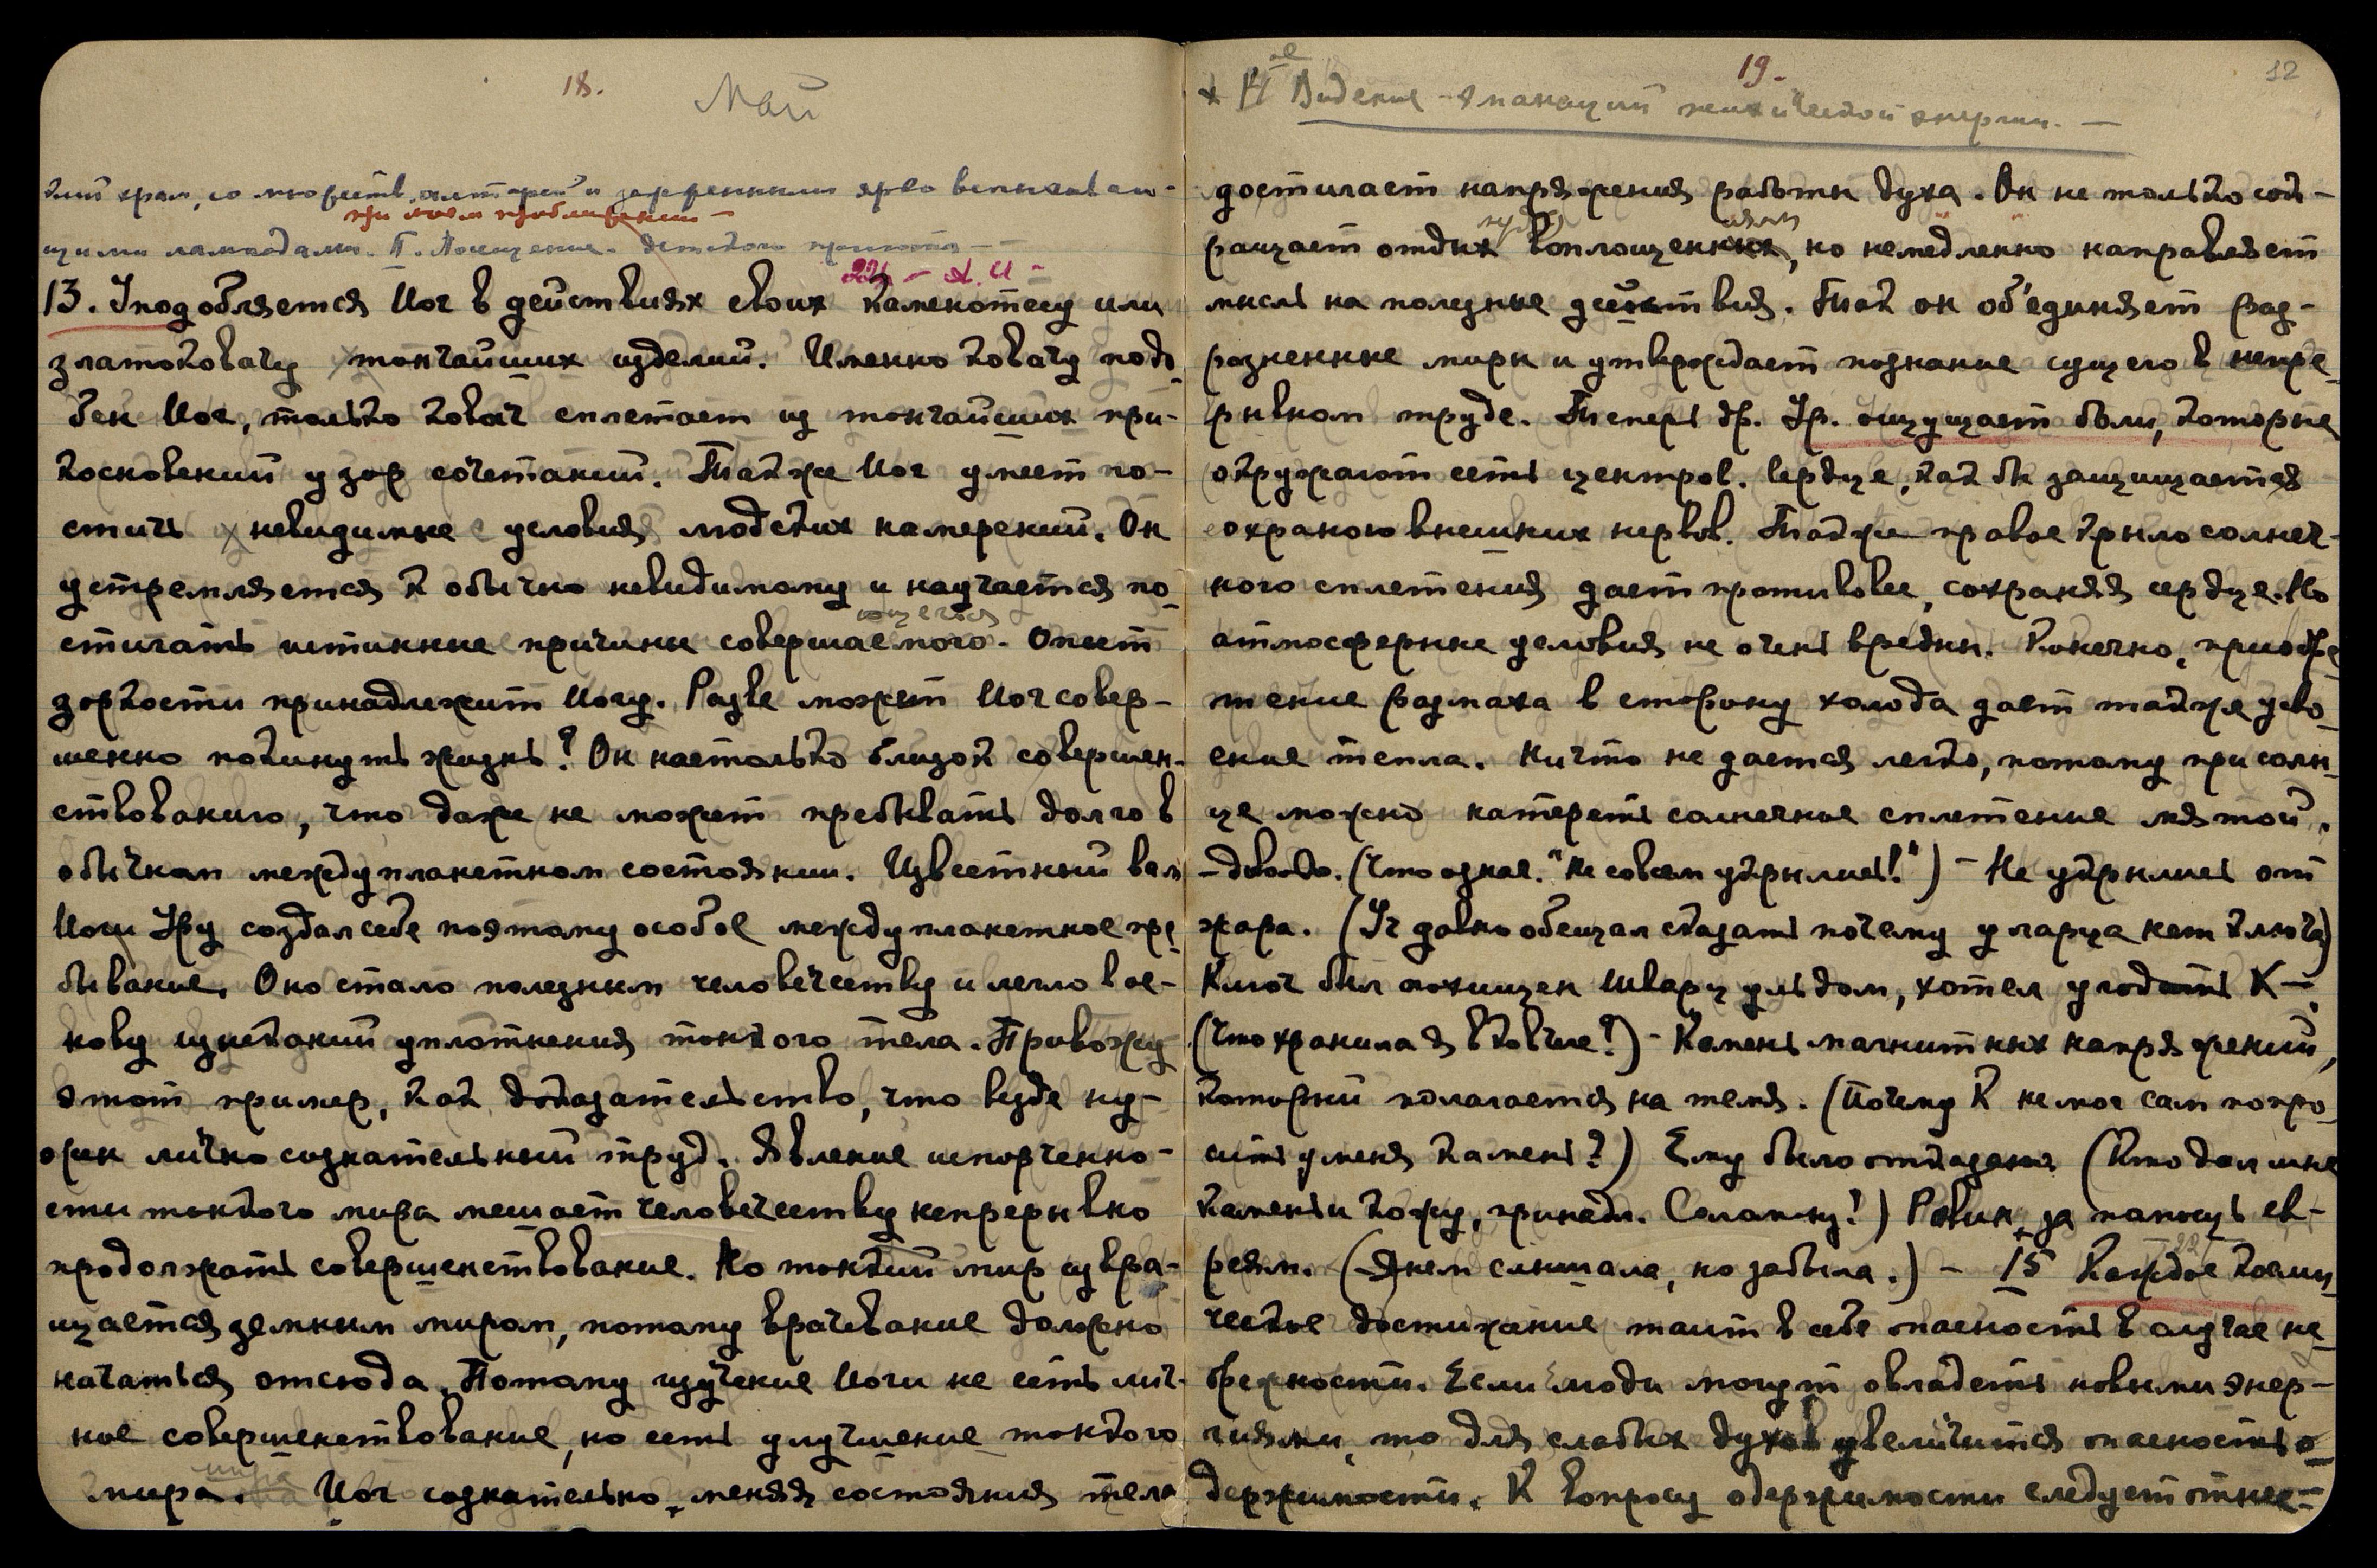 18.
Май
кий храм, со множеств. алтарей и зажженными ярко воспылаю-
при моем приближении —
щими лампадами. П. Посещение. Детского приюта —
224 — А. И -
13. Уподобляется Йог в действиях своих каменотесу или
златоковачу тончайших изделий. Именно ковачу подо-
бен Йог, только ковач сплетает из тончайших при-
косновений узор сочетаний. Также Йог умеет по-
стичь невидимые условия людских намерений. Он
устремляется к обычно невидимому и научается по-
ющегося
стигать истинные причины совершаемого. Опыт
зоркости принадлежит Йогу. Разве может Йог совер-
шенно покинуть жизнь? Он настолько близок совершен-
ствованию, что даже не может пребывать долго в
обычном междупланетном состоянии. Известный вам
Йоги Уру создал себе поэтому особое междупланетное пре
бывание. Оно стало полезным человечеству и легло в ос-
нову изысканий уплотнения тонкого тела. Привожу
этот пример, как доказательство, что везде ну-
жен лично сознательный труд. Явление испорченно-
сти тонкого мира мешает человечеству непрерывно
продолжать совершенствование. Но тонкий мир извра-
щается земным миром, потому врачевание должно
начаться отсюда. Потому изучение Йоги не есть лич-
ное совершенствование, но есть улучшение тонкого
мира
мира. Йог сознательно, меняя состояния тела
19.
12
х Видение эманаций психической энергии. —
достигает напряжения работы духа. Он не только сок-
ращает отдых воплощенных, но немедленно направляет
мысль на полезные действия. Так он об'единяет раз-
розненные миры и утверждает познание сущего в непре-
рывном труде. Теперь др. Ур. ощущает боли, которые
окружают сеть центров. Сердце, как бы защищается
охраною внешних нервов. Также правое крыло солнеч-
ного сплетения дает противовес, сохраняя сердце. Но
атмосферные условия не очень вредны. Конечно, приобре
тение размаха в сторону холода дает также усво-
ение тепла. Ничто не дается легко, потому при солн-
це можно натереть солнечное сплетение мятой.
(Что означ. "Не совсем укрылись!") — Не укрылись от
жара. (Уч давно обещал сказать почему у ларца нет ключа)
Ключ был похищен Шварцульдом, хотел угодить К —.
(Что хранила я в ковчеге?) — Камень магнитных напряжений,
который полагается на темя. (Почему К не мог сам попро
сить у меня камень?) Ему было отказано (Кто дал мне
камень и кожу, принадл. Соломону?) Равин, за помощь ев-
реям. (Я нем слышала, но забыла.) — 15 Каждое косми-
ческое достижение таит в себе опасность в случае не
брежности. Если люди могут овладеть новыми энер-
гиями, то для слабых духов увеличится опасность о-
держимости. К вопросу одержимости следует отнес-